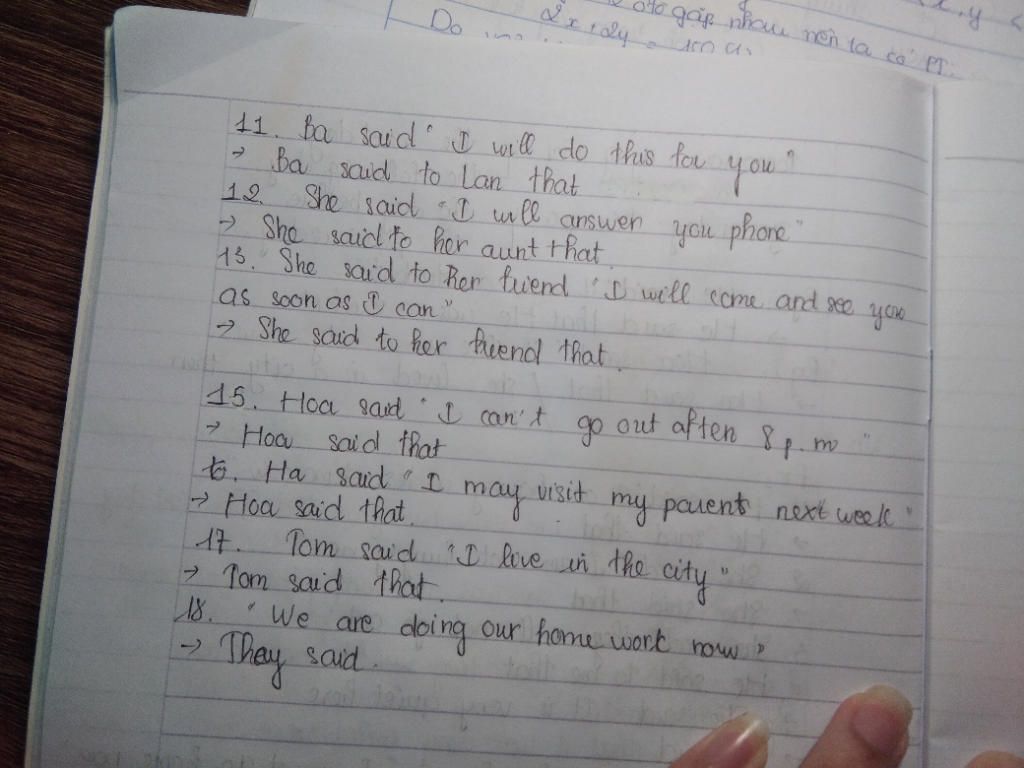 oto gặp nhau nên ta có PT:
x, y <
Do
2x + 2y =
11. Ba said " I will do this for you "
→ Ba said to Lan that
12. She said " I will answer you phone "
→ She said to her aunt that.
13. She said to her friend " I will come and see you
as soon as I can "
→ She said to her friend that.
15. Hoa said " I can't go out after 8 p.m "
→ Hoa said that
Ha said " I may visit my parent next week "
→ Hoa said that.
17. Tom said " I live in the city "
→ Tom said that.
18. " We are doing our home work now "
→ They said.